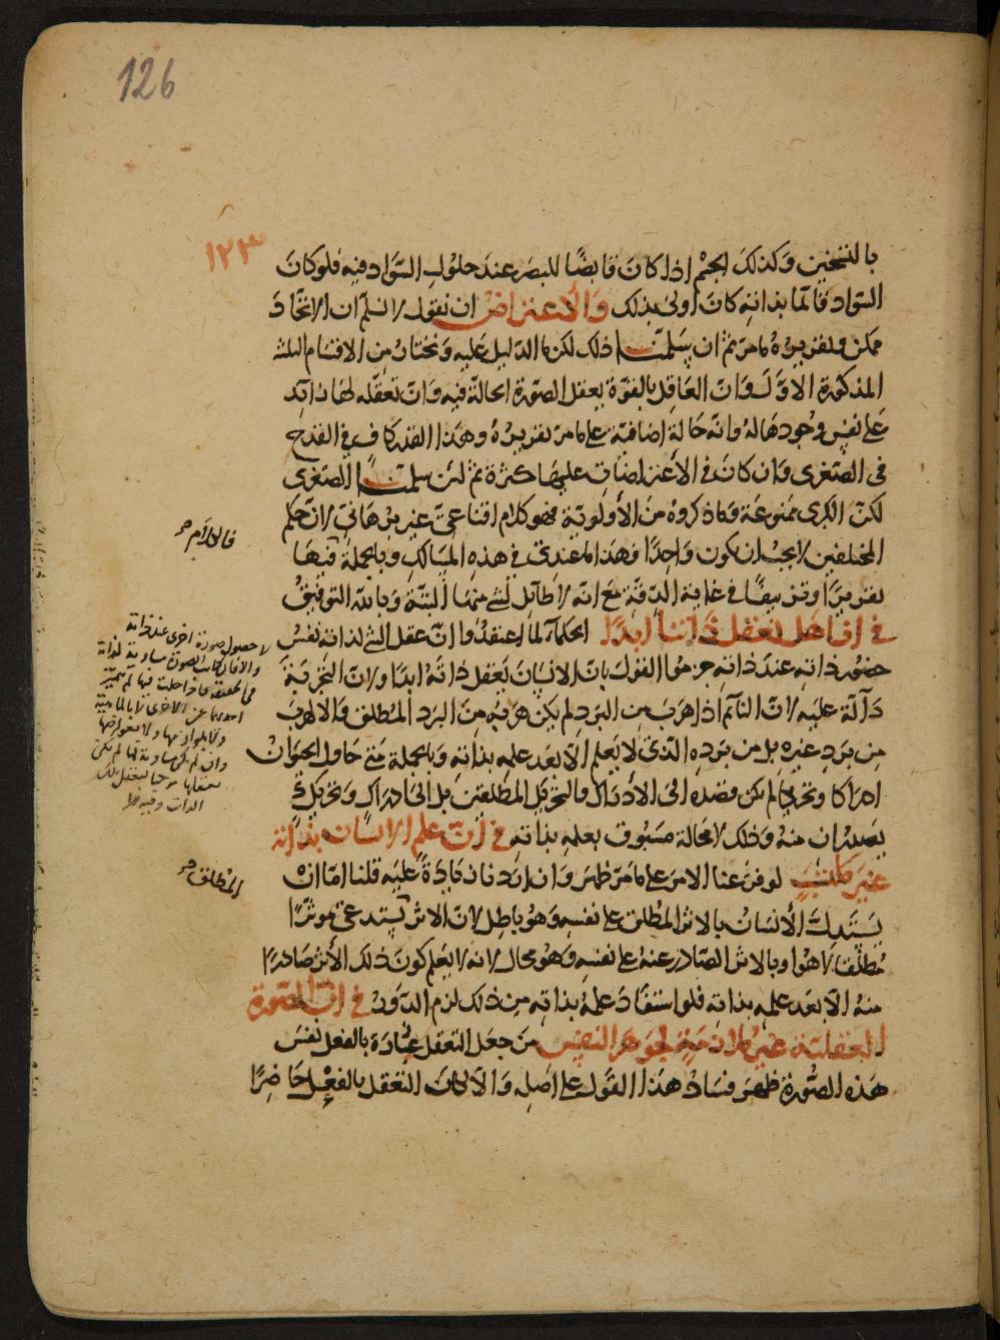 126
١٢٣
بالتسخين وكذلك الجسم اذا كان قابضًا للبصر عند حلول السواد فيه فلو كان
السواد قائما بذاته كان اولى بذلك والاعتراض ان نقول لا نسلم ان الاتحاد
ممكن وتقريره ما مر ثم ان سلمنا ذلك لكن ما الدليل عليه ونختار من الاقسام الثلثه
المذكورة الاول وان العاقل بالقوة يعقل الصورة الحالة فيه وان تعقله لها زائد
على نفس وجودها له وانه حالة اضافية على ما مر تقريره وهذا القدر كاف في القدح
في الصغرى وان كان في الاعتراضات عليها كثرة ثم لئن سلمنا الصغرى
لكن الكبرى ممنوعة وما ذكروه من الأولوية فهو كلام اقناعي غير برهاني لان حكم
المختلفين لا يجب ان يكون واحدًا فهذا ما عندي في هذه المسالك وبالجملة فيها
تقريرًا وتزييفًا في غاية الدقة مع انه لا طائل لشي منها البتة وبالله التوفيق
في انا هل نعقل ذاتنا ابدًا الحكماء لما اعتقدوا ان عقل الشي لذاته نفس
حضور ذاته عند ذاته جزموا القول بان الانسان يعقل ذاته ابدًا ولان التجربة
دالة عليه لان النائم اذا هرب من البرد لم يكن هربه من البرد المطلق ولا لهرب
من برد غيره بل من برده الذي لا يعلم الا بعد علمه بذاته وبالجملة متى حاول الحيوان
ادراكا وتحريكا لم يكن قصده الى الأدراك والتحريك المطلقين بل الى ادراك وتحريك
يصدران منه وذلك لا محالة مسبوق بعلمه بذاته في ان علم الانسان بذاته
غير مكتسب لو فرعنا الامر على ما مر ظهر وان اردنا زيادة عليه قلنا اما انه
يستدل الأنسان بالاثر المطلق على نفسه وهو باطل لان الاثر يستدعي موثرًا
مطلقا لا هو او بالاثر الصادر عنه على نفسه وهو محال لانه لا يعلم كون ذلك الأثر صادرًا
منه الا بعد علمه بذاته فلو استفاد علمه بذاته من ذلك لزم الدور في ان الصورة
العقلية غير ملازمة لجوهر النفس من جعل التعقل عبارة بالفعل نفس
هذه الصورة ظهر فساد هذا القول على اصله والا لكان التعقل بالفعل حاضرًا
فالكلام
لا حصول صورة اخرى عند ذاته
والا فان كانت الصورة مساوية لذاته
احديهما عن الاخرى لا بالماهية
ولا بلوازمها ولا بعوارضها
وان لم يكن مساوية لها لم يكن
تعقلها موجبا لتعقل تلك
الذات
المطلق